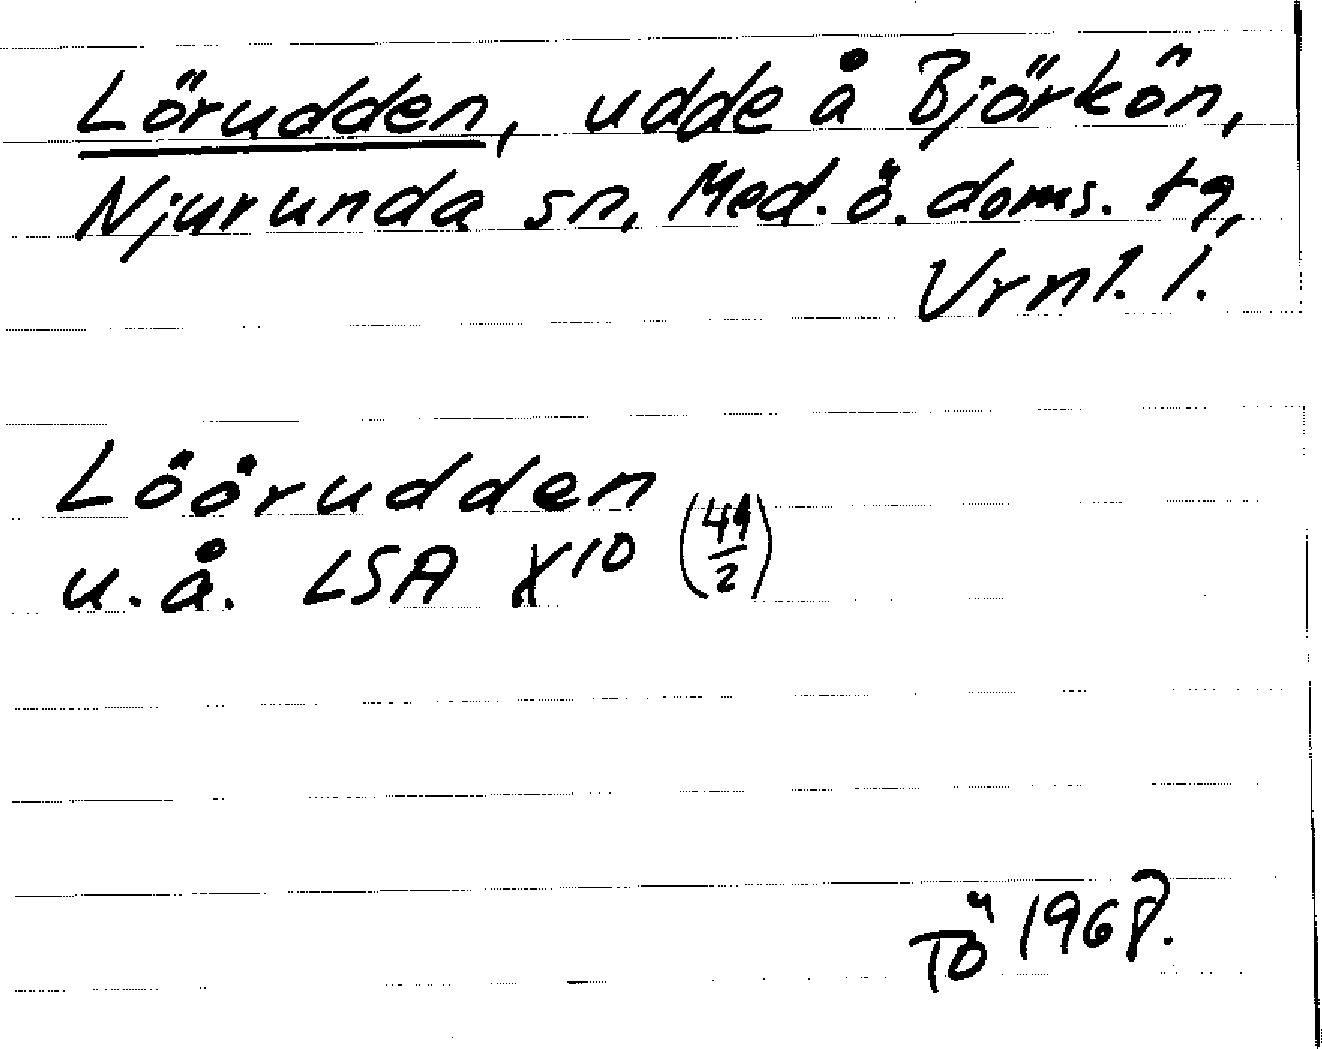 Lörudden, udde å Björkön,
Njurunda sn, Med. ö. doms. tg,
Vrnl. l.
Löörudden
u. å. LSA X10 (49/2)
TÖ 1968.